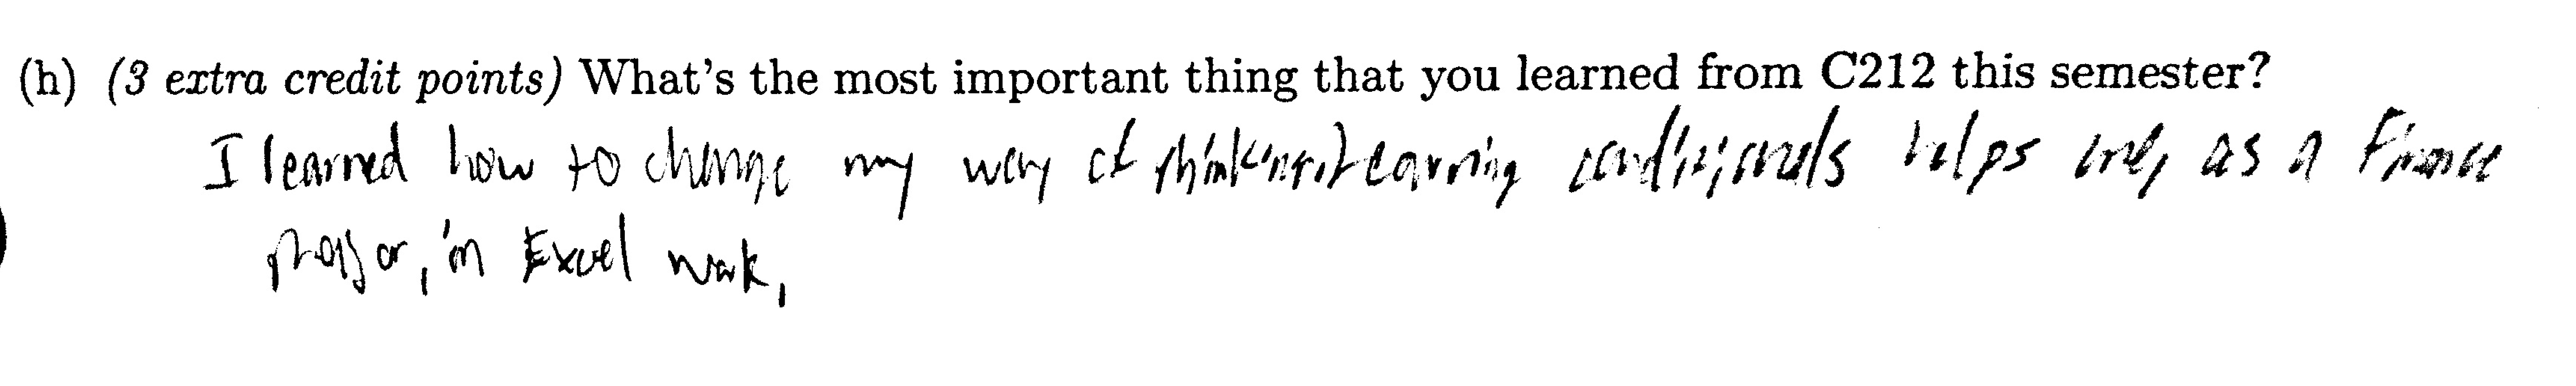 (h) (3 extra credit points) What's the most important thing that you learned from C212 this semester?
I learned how to change my way of thinking. Learning conditionals helps me, as a Finance
major, in Excel work,